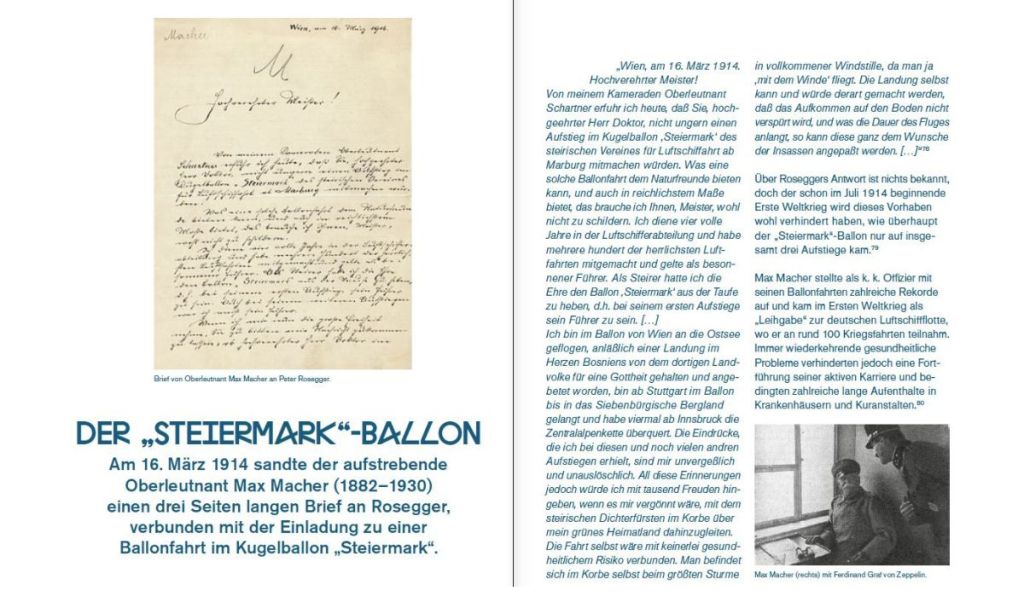 Macher
Wien, am 16. März 1914.
M
Hochverehrter Meister!
Von meinem Kameraden Oberleutnant
Schartner erfuhr ich heute, daß Sie, hochgeehrter
Herr Doktor, nicht ungern einen Aufstieg im
Kugelballon „Steiermark" des steirischen Vereines
für Luftschiffahrt ab Marburg mitmachen wür-
den.
Brief von Oberleutnant Max Macher an Peter Rosegger.
DER „STEIERMARK“-BALLON
Am 16. März 1914 sandte der aufstrebende
Oberleutnant Max Macher (1882–1930)
einen drei Seiten langen Brief an Rosegger,
verbunden mit der Einladung zu einer
Ballonfahrt im Kugelballon „Steiermark“.
„Wien, am 16. März 1914.
Hochverehrter Meister!
Von meinem Kameraden Oberleutnant
Schartner erfuhr ich heute, daß Sie, hoch-
geehrter Herr Doktor, nicht ungern einen
Aufstieg im Kugelballon ‚Steiermark‘ des
steirischen Vereines für Luftschiffahrt ab
Marburg mitmachen würden. Was eine
solche Ballonfahrt dem Naturfreunde bieten
kann, und auch in reichlichstem Maße
bietet, das brauche ich Ihnen, Meister, wohl
nicht zu schildern. Ich diene vier volle
Jahre in der Luftschifferabteilung und habe
mehrere hundert der herrlichsten Luft-
fahrten mitgemacht und gelte als beson-
nener Führer. Als Steirer hatte ich die
Ehre den Ballon ‚Steiermark‘ aus der Taufe
zu heben, d.h. bei seinem ersten Aufstiege
sein Führer zu sein. […]
Ich bin im Ballon von Wien an die Ostsee
geflogen, anläßlich einer Landung im
Herzen Bosniens von dem dortigen Land-
volke für eine Gottheit gehalten und ange-
betet worden, bin ab Stuttgart im Ballon
bis in das Siebenbürgische Bergland
gelangt und habe viermal ab Innsbruck die
Zentralalpenkette überquert. Die Eindrücke,
die ich bei diesen und noch vielen andren
Aufstiegen erhielt, sind mir unvergeßlich
und unauslöschlich. All diese Erinnerungen
jedoch würde ich mit tausend Freuden hin-
geben, wenn es mir vergönnt wäre, mit dem
steirischen Dichterfürsten im Korbe über
mein grünes Heimatland dahinzugleiten.
Die Fahrt selbst wäre mit keinerlei gesund-
heitlichem Risiko verbunden. Man befindet
sich im Korbe selbst beim größten Sturme
in vollkommener Windstille, da man ja
‚mit dem Winde‘ fliegt. Die Landung selbst
kann und würde derart gemacht werden,
daß das Aufkommen auf den Boden nicht
verspürt wird, und was die Dauer des Fluges
anlangt, so kann diese ganz dem Wunsche
der Insassen angepaßt werden. […]“⁷⁸
Über Roseggers Antwort ist nichts bekannt,
doch der schon im Juli 1914 beginnende
Erste Weltkrieg wird dieses Vorhaben
wohl verhindert haben, wie überhaupt
der „Steiermark“-Ballon nur auf insge-
samt drei Aufstiege kam.⁷⁹
Max Macher stellte als k. k. Offizier mit
seinen Ballonfahrten zahlreiche Rekorde
auf und kam im Ersten Weltkrieg als
„Leihgabe“ zur deutschen Luftschiffflotte,
wo er an rund 100 Kriegsfahrten teilnahm.
Immer wiederkehrende gesundheitliche
Probleme verhinderten jedoch eine Fort-
führung seiner aktiven Karriere und be-
dingten zahlreiche lange Aufenthalte in
Krankenhäusern und Kuranstalten.⁸⁰
Max Macher (rechts) mit Ferdinand Graf von Zeppelin.